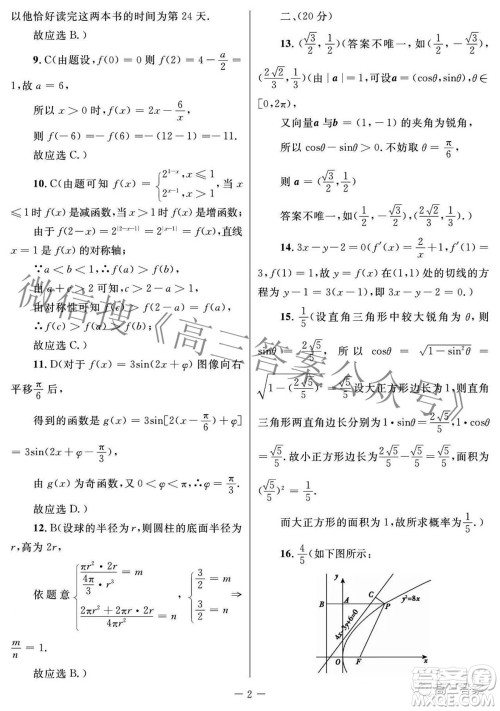 以他恰好读完这两本书的时间为第 24 天.
故应选 B.)
9. C(由题设, f(0)=0 则 f(2)=4-a/2
=1,故 a=6,
所以 x>0 时, f(x)=2x-6/x
则 f(-6)=-f(6)=-(12-1)=-11.
故应选 C.)
10. C(由题可知 f(x)={2^{1-x},x⩽1 2^{x-1},x>1,当 x
⩽1 时 f(x)是减函数,当 x>1 时 f(x)是增函数;
由于 f(2-x)=2^{|2-x-1|}=2^{|x-1|}=f(x),直线
x=1 是 f(x)的对称轴;
∵a<b<1,∴f(a)>f(b)
由对称性可知
故应选 C.)
11. D(将函数 f(x)=3sin(2x+φ)图像向右
平移 π/6 后,
得到的函数是 g(x)=3sin[2(x-π/6)+φ]
=3sin(2x+φ-π/3).
∵g(x)为奇函数,又 0<φ<π,∴φ=π/3.
故应选 D.)
12. B(设球的半径为 r,则圆柱的底面半径为
r,高为 2r,
依题意{πr²·2r/(4π/3 r³)=m 2πr²+2πr·2r/4πr²=n ∴{3/2=m 3/2=n ∴
m/n=1.
故应选 B.)
二、(20 分)
13. (√3/2,1/2)(答案不唯一,如(√2/2,√2/2),
(2√2/3,1/3)(由|a|=1,可设 a=(cosθ,sinθ),θ∈
[0,2π),
又向量 a 与 b=(1,-1)的夹角为锐角,
所以 cosθ-sinθ>0. 不妨取 θ=π/6,
则 a=(√3/2,1/2)
答案不唯一,如(√3/2,1/2),(2√2/3,1/3)
14. 3x-y-2=0(f′(x)=2/x+1,f′(1)=
3,f(1)=1,故 y=f(x)在点 P(1,f(1))处的切线的方程
为 y-1=3(x-1),即 3x-y-2=0.)
15. 1/5(设直角三角形中较大锐角为 θ,则
sinθ=2√5/5,所以 cosθ=√1-sin²θ=
√1-(2√5/5)²=√5/5,设大正方形边长为 1,则直角
三角形两直角边长分别为 1·sinθ=2√5/5,1·cosθ
=√5/5. 故小正方形边长为 2√5/5-√5/5=√5/5,面积
(√5/5)²=1/5.
而大正方形的面积为 1,故所求概率为 1/5.)
16. 4/5(如下图所示:
y
B A P C y²=8x
4x-3y+6=0
O F x
— 2 —
微信搜《高三答案公众号》